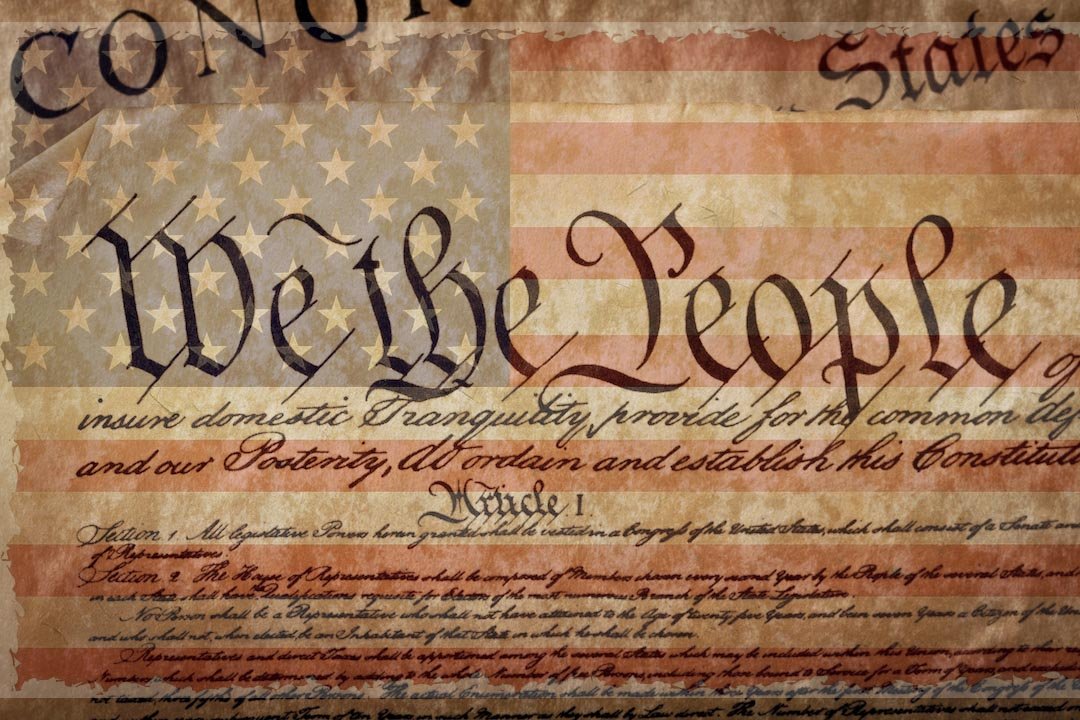 CONGR
States
We the People of
insure domestic Tranquility, provide for the common def
and our Posterity, do ordain and establish this Constituti
Article I.
Section 1. All legislative Powers herein granted shall be vested in a Congress of the United States, which shall consist of a Senate and
of Representatives.
Section 2. The House of Representatives shall be composed of Members chosen every second Year by the People of the several States, and
in each State shall have Qualifications requisite for Electors of the most numerous Branch of the State Legislature.
No Person shall be a Representative who shall not have attained to the Age of twenty five Years, and been seven Years a Citizen of the Un
and who shall not, when elected, be an Inhabitant of that State in which he shall be chosen.
Representatives and direct Taxes shall be apportioned among the several States which may be included within this Union, according to their
Numbers, which shall be determined by adding to the whole Number of free Persons, including those bound to Service for a Term of Years, and
not taxed, three fifths of all other Persons. The actual Enumeration shall be made within three Years after the first Meeting of the Congress of the
subsequent Term of ten Years, in such Manner as they shall by Law direct. The Number of Representatives shall not